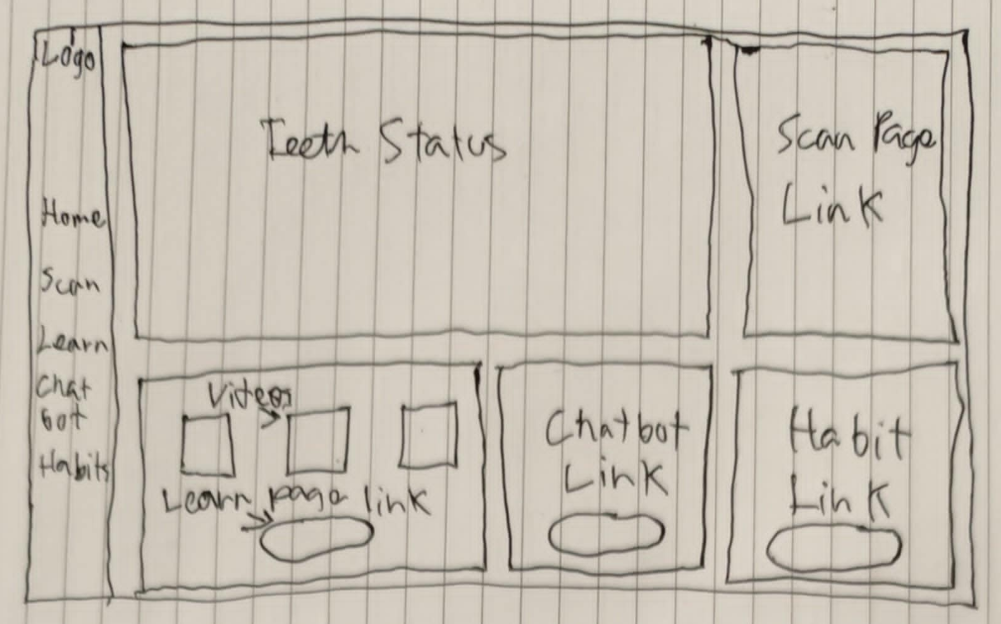 Logo
Home
Scan
Learn
Chat
bot
Habits
Teeth Status
Scan Page
Link
Videos
Learn page link
Chatbot
Link
Habit
Link